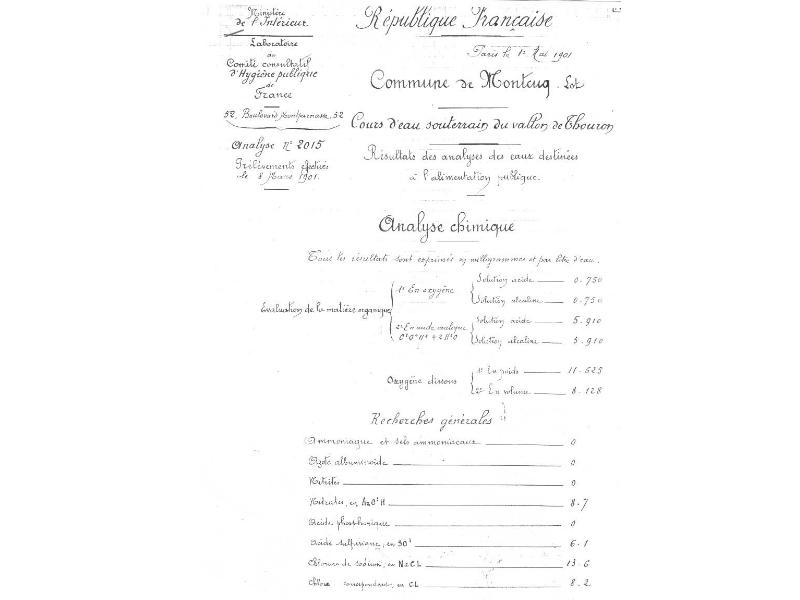 Ministère
de l'Intérieur
Laboratoire
du
Comité consultatif
d'Hygiène publique
de
France
52, Boulevard Montparnasse, 52
Analyse N° 2015
Prélèvements effectués
le 8 Mars 1901.
République Française
Paris le 1er Mai 1901
Commune de Montcuq. Lot
Cours d'eau souterrain du vallon de Thouron
Résultats des analyses des eaux destinées
à l'alimentation publique.
Analyse chimique
Tous les résultats sont exprimés en milligrammes et par litre d'eau.
Evaluation de la matière organique
1° En oxygène
Solution acide 0.750
Solution alcaline 0.750
2° En acide oxalique
C²O⁴H² + 2H²O
Solution acide 5.910
Solution alcaline 5.910
Oxygène dissous
1° En poids 11.625
2° En volume 8.128
Recherches générales
Ammoniaque et sels ammoniacaux 0
Azote albuminoïde 0
Nitrites 0
Nitrates, en AzO³H 8.7
Acide phosphorique 0
Acide sulfurique, en SO³ 6.1
Chlorure de sodium, en NaCL 13.6
Chlore correspondant, en CL 8.2